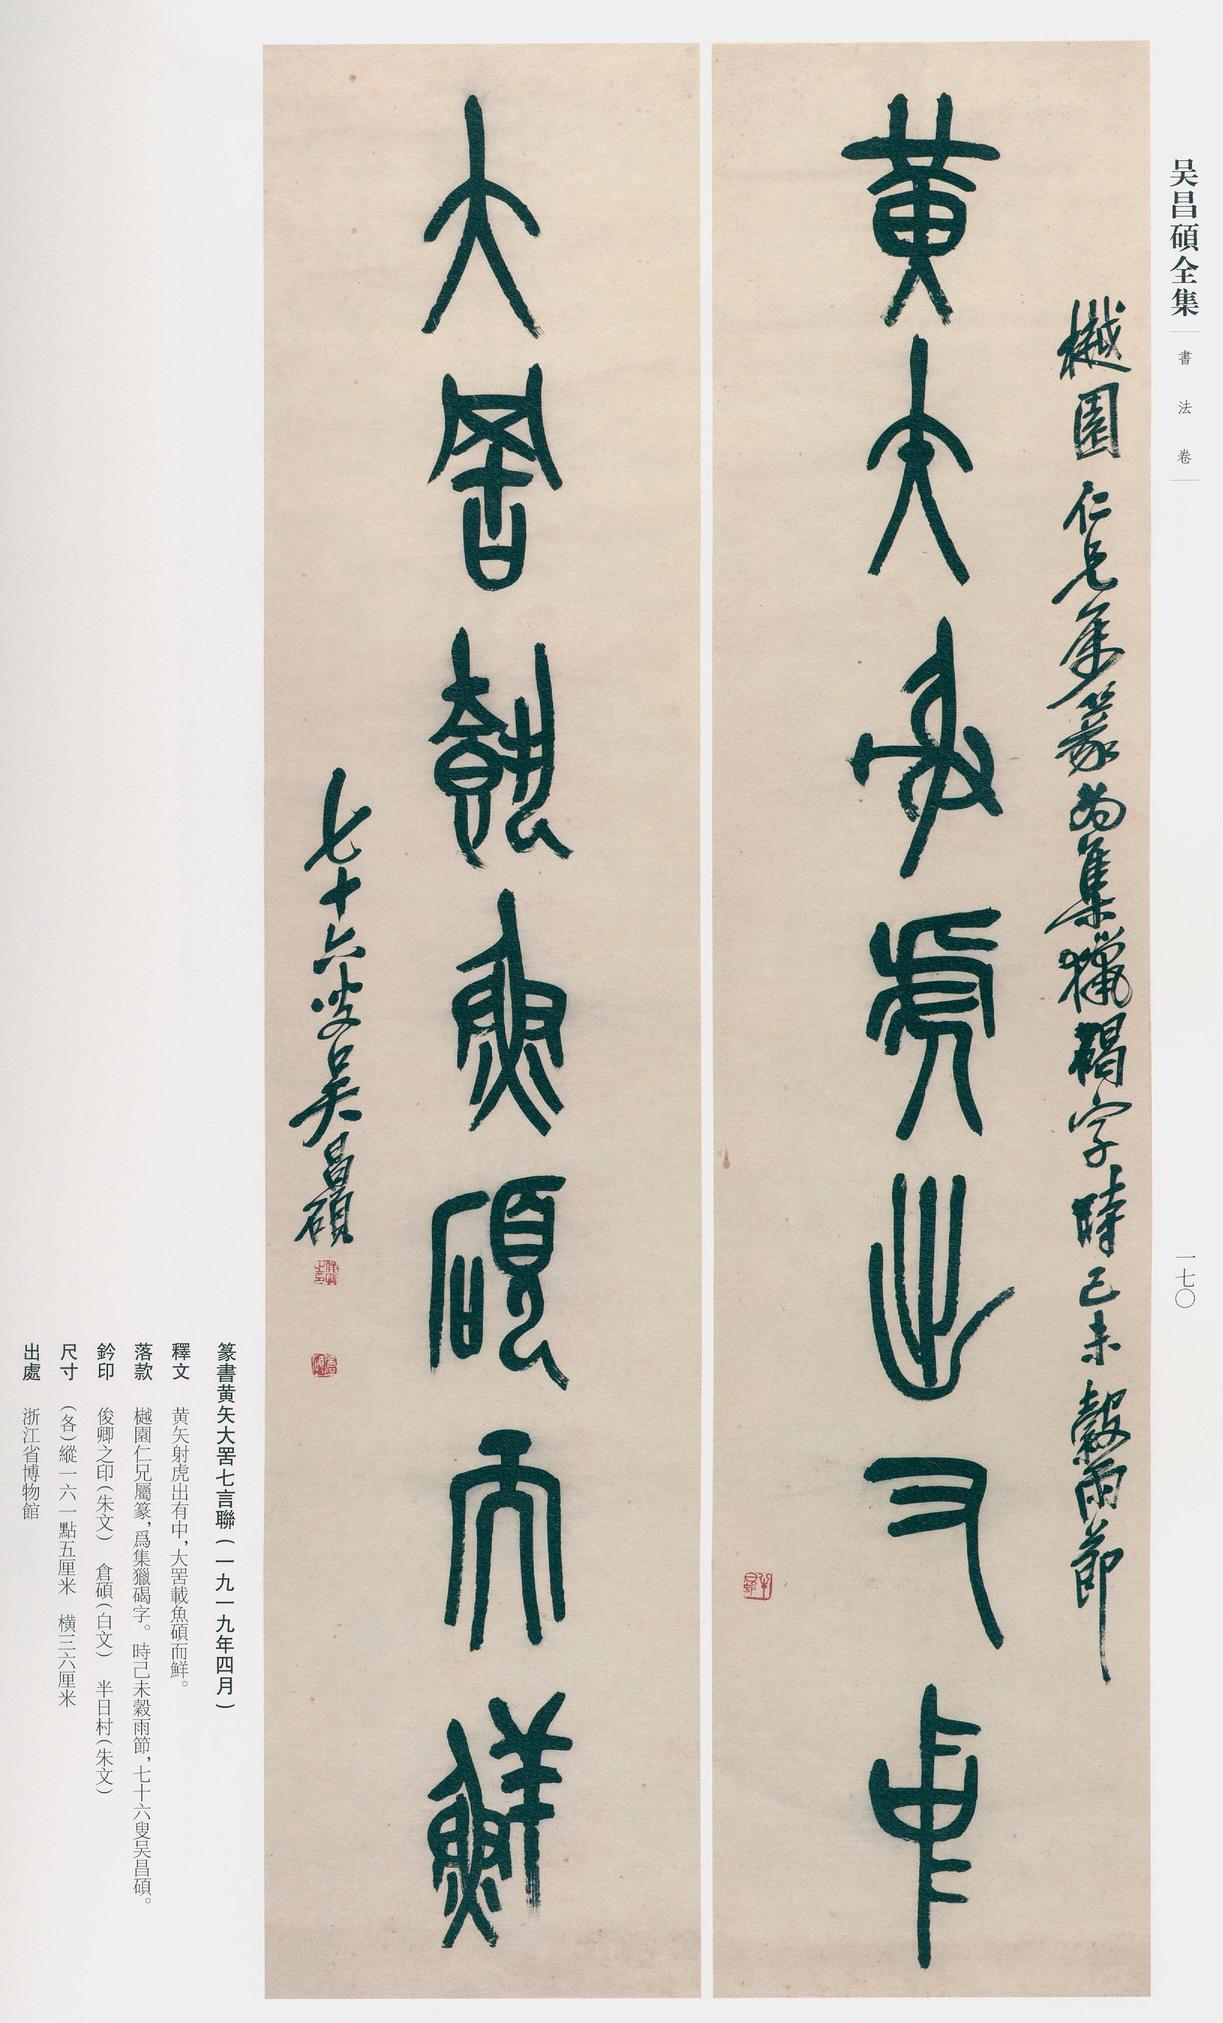 吴昌碩全集
書法卷
一七〇
樾園仁兄屬篆為集獵碣字時己未穀雨節
黄矢射虎出又中
大罟載魚碩而鮮
七十六叟吴昌碩
篆書黄矢大罟七言聯(一九一九年四月)
釋文 黄矢射虎出有中,大罟載魚碩而鮮。
落款 樾園仁兄屬篆,爲集獵碣字。時己未穀雨節,七十六叟吴昌碩。
鈐印 俊卿之印(朱文) 倉碩(白文) 半日村(朱文)
尺寸 (各)縱一六一點五厘米 横三六厘米
出處 浙江省博物館